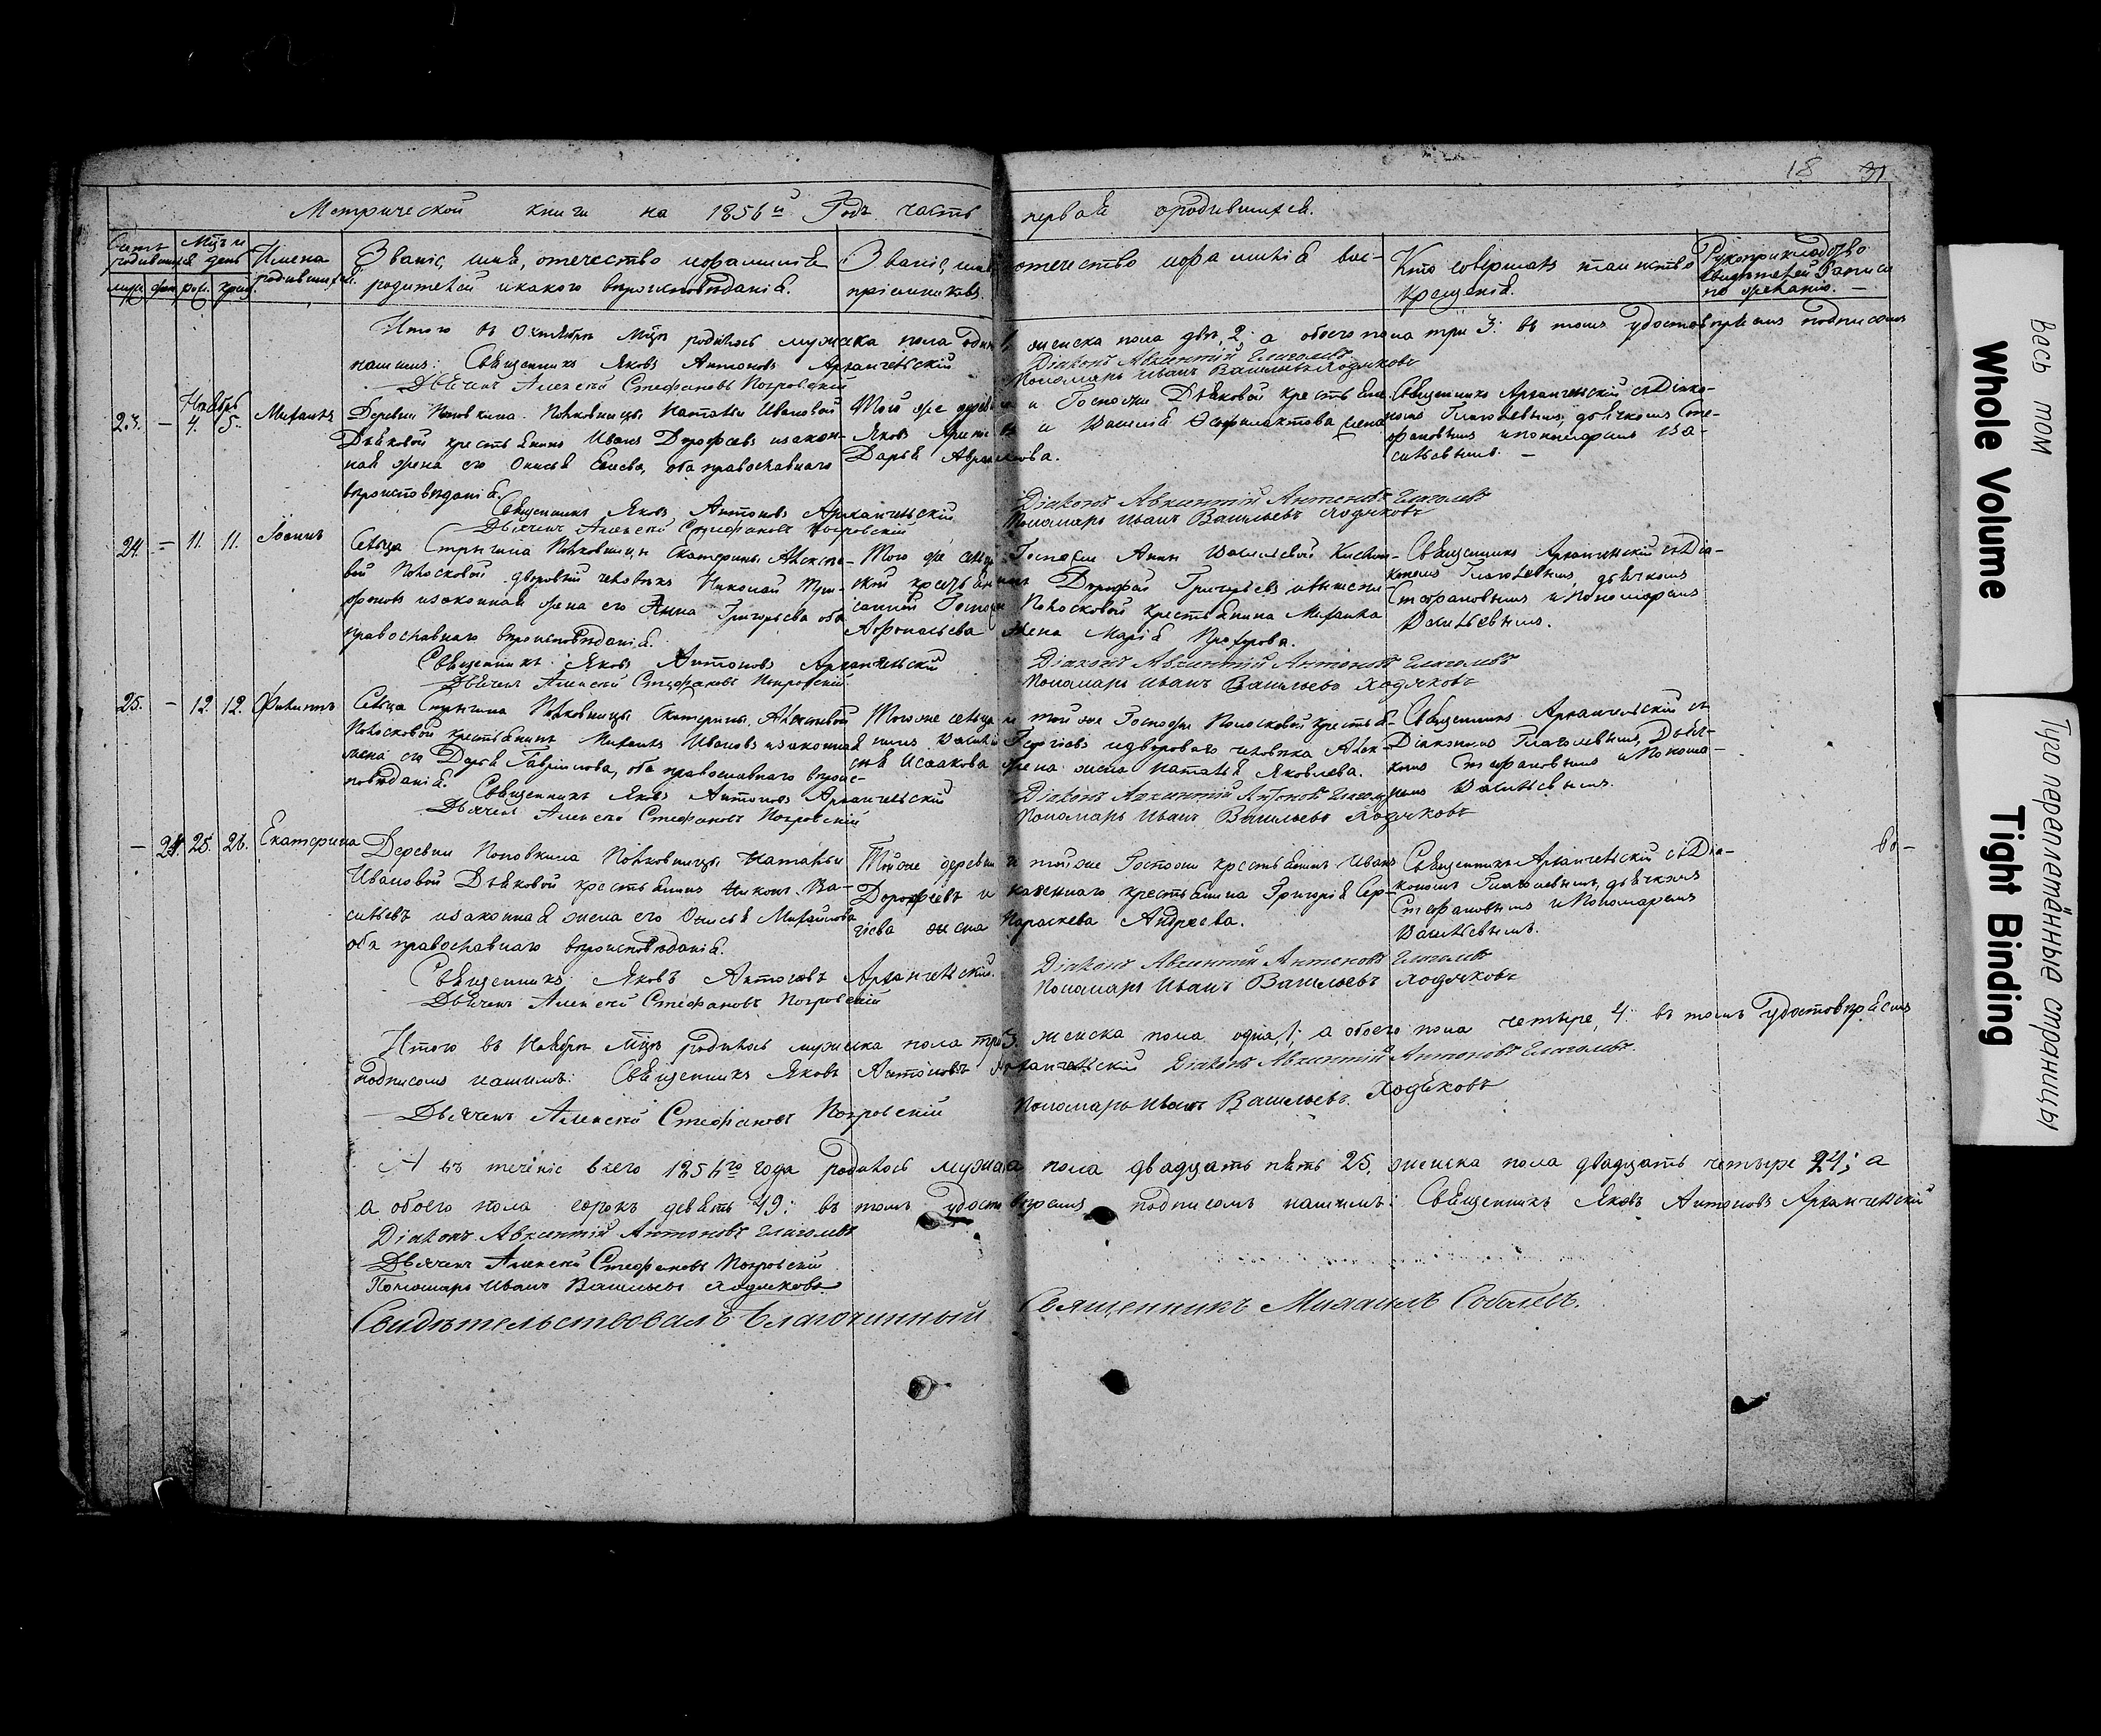 18 31
Метрической книги на 1856й Годъ часть первая ородившихся.
Счетъ родившихся
муж. жен.
Мцъ и день
рож. крещ.
Имена родившихся.
Званіе, имя, отечество ифамилія
родителей икакого вѣроисповѣданія.
Званіе, имя отечество ифамилія вос-
пріемниковъ.
Кто совершалъ таинство
крещенія.
Рукоприкладство
свидѣтелей записи
по желанію. —
Итого въ Октябрѣ Мцѣ родилось мужеска пола одинъ 1, женска пола двѣ, 2; а обоего пола три 3: въ томъ удостовѣряемъ подписомъ
нашимъ: Священникъ Яковъ Антоновъ Архангельскій Діаконъ Авксентій Глаголевъ
Дьячекъ Алексей Стефановъ Покровскій Пономарь Иванъ Васильевъ Ходяковъ
Ноябрь
23. — 4. 5. Михаилъ
Деревни Поповкина Полковницы Натальи Ивановой
Дьяковой крестьянинъ Иванъ Дорофеевъ изакон-
ная жена его Анисья Елисева, оба православнаго
вѣроисповѣданія.
Той же деревни и Госпожи Дьяковой крестьяне
Яковъ и Василія Ѳеофилактова жена
Дарья Авраамова.
Священникъ Архангельскій съДіако-
номъ Глаголевымъ, дьячкомъ Сте-
фановымъ ипономаремъ Ва-
сильевымъ. —
Священникъ Яковъ Антоновъ Архангельскій Діаконъ Авксентій Антоновъ Глаголевъ
Дьячекъ Алексей Стефановъ Покровскій Пономарь Иванъ Васильевъ Ходяковъ
24. — 11. 11. Іоаннъ
Сельца Стрыгина Полковницы Екатерины Алексѣе-
вой Полосковой дворовый человѣкъ Николай
изаконная жена его Анна Григорьева оба
православнаго вѣроисповѣданія.
Того же сельца Госпожи Анны Васильевой
ской крестьянинъ Дорофей Григорьевъ ивышепи-
санной Госпожи Полосковой крестьянина Михаила
Афонасьева жена Марія Прохорова.
Священникъ Архангельскій съДіа-
кономъ Глаголевымъ, дьячкомъ
Стефановымъ иПономаремъ
Васильевымъ.
Священникъ Яковъ Антоновъ Архангельскій Діаконъ Авксентій Антоновъ Глаголевъ
Дьячекъ Алексей Стефановъ Покровскій Пономарь Иванъ Васильевъ Ходяковъ
25. — 12. 12. Филиппъ
Сельца Стрыгина Полковницы Екатерины Алексѣевой
Полосковой крестьянинъ Михаилъ Ивановъ изаконная
жена его Дарья Гавриилова, оба православнаго вѣроис-
повѣданія.
Тогоже сельца и тойже Госпожи Полосковой крестья-
нинъ Василій Георгіевъ идвороваго человѣка Алек-
сѣя Исаакова жена Наталья Яковлева.
Священникъ Архангельскій съ
Діакономъ Глаголевымъ, Дьяч-
комъ Стефановымъ иПонома-
ремъ Васильевымъ.
Священникъ Яковъ Антоновъ Архангельскій Діаконъ Авксентій Антоновъ Глаголевъ
Дьячекъ Алексей Стефановъ Покровскій Пономарь Иванъ Васильевъ Ходяковъ
— 24. 25. 26. Екатерина
Деревни Поповкина Полковницы Натальи
Ивановой Дьяковой крестьянинъ Никонъ Ва-
сильевъ изаконная жена его Анисья Михайлова
оба православнаго вѣроисповѣданія.
Тойже деревни и тойже Госпожи крестьянинъ Иванъ
Дорофеевъ и казеннаго крестьянина Григорія Сер-
гіева жена Параскева Андреева.
Священникъ Архангельскій съДіа-
кономъ Глаголевымъ, дьячкомъ
Стефановымъ иПономаремъ
Васильевымъ.
Священникъ Яковъ Антоновъ Архангельскій. Діаконъ Авксентій Антоновъ Глаголевъ
Дьячекъ Алексей Стефановъ Покровскій Пономарь Иванъ Васильевъ Ходяковъ
Итого въ Ноябрѣ Мцѣ родилось мужеска пола три 3. женска пола одна 1; а обоего пола четыре, 4: въ томъ удостовѣряемъ
подписомъ нашимъ: Священникъ Яковъ Антоновъ Архангельскій Діаконъ Авксентій Антоновъ Глаголевъ.
Дьячекъ Алексей Стефановъ Покровскій Пономарь Иванъ Васильевъ Ходяковъ
А въ теченіе всего 1856го года родилось мужеска пола двадцать пять 25, женска пола двадцать четыре 24; а
а обоего пола сорокъ девять 49: въ томъ удостовѣряемъ подписомъ нашимъ: Священникъ Яковъ Антоновъ Архангельскій
Діаконъ Авксентій Антоновъ Глаголевъ
Дьячекъ Алексей Стефановъ Покровскій
Пономарь Иванъ Васильевъ Ходяковъ
Свидѣтельствовалъ Благочинный Священникъ Михаилъ Соболевъ.
Весь том
Whole Volume
Туго переплетённые страницы
Tight Binding